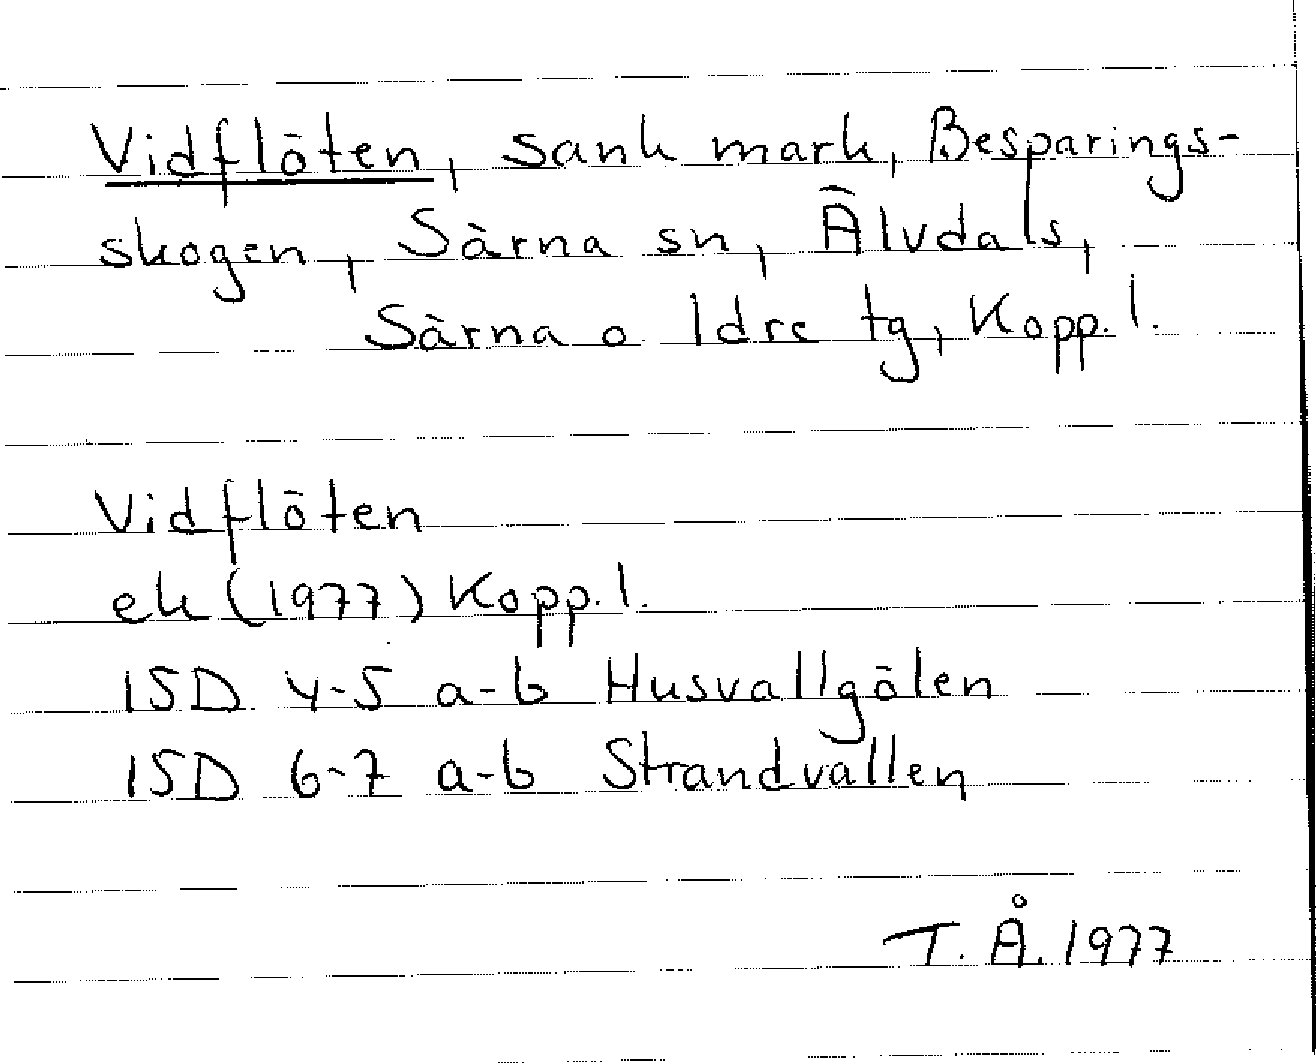 Vidflöten, sank mark, Besparings-
skogen, Särna sn, Älvdals,
Särna o Idre tg, Kopp. l.
Vidflöten
ek (1977) Kopp. l.
15D 4-5 a-b Husvallgölen
15D 6-7 a-b Strandvallen
T. Å. 1977